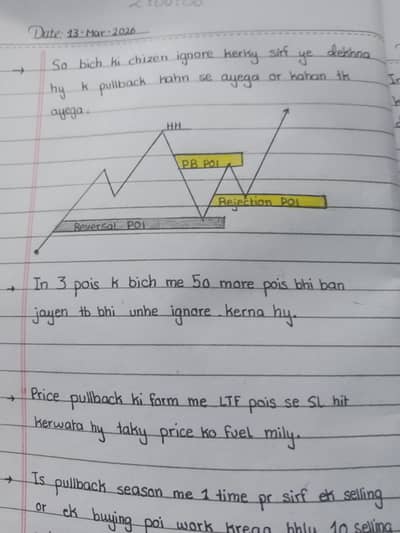 Date: 13-Mar-2026
So bich ki chizen ignore kerky sirf ye dekhna
hy k pullback kahn se ayega or kahan tk
ayega.
HH
PB POI
Rejection POI
Reversal POI
In 3 pois k bich me 50 more pois bhi ban
jayen tb bhi unhe ignore kerna hy.
Price pullback ki form me LTF pois se SL hit
kerwata hy taky price ko fuel mily.
Is pullback season me 1 time pr sirf ek selling
or ek buying poi work krega bhly 10 selling